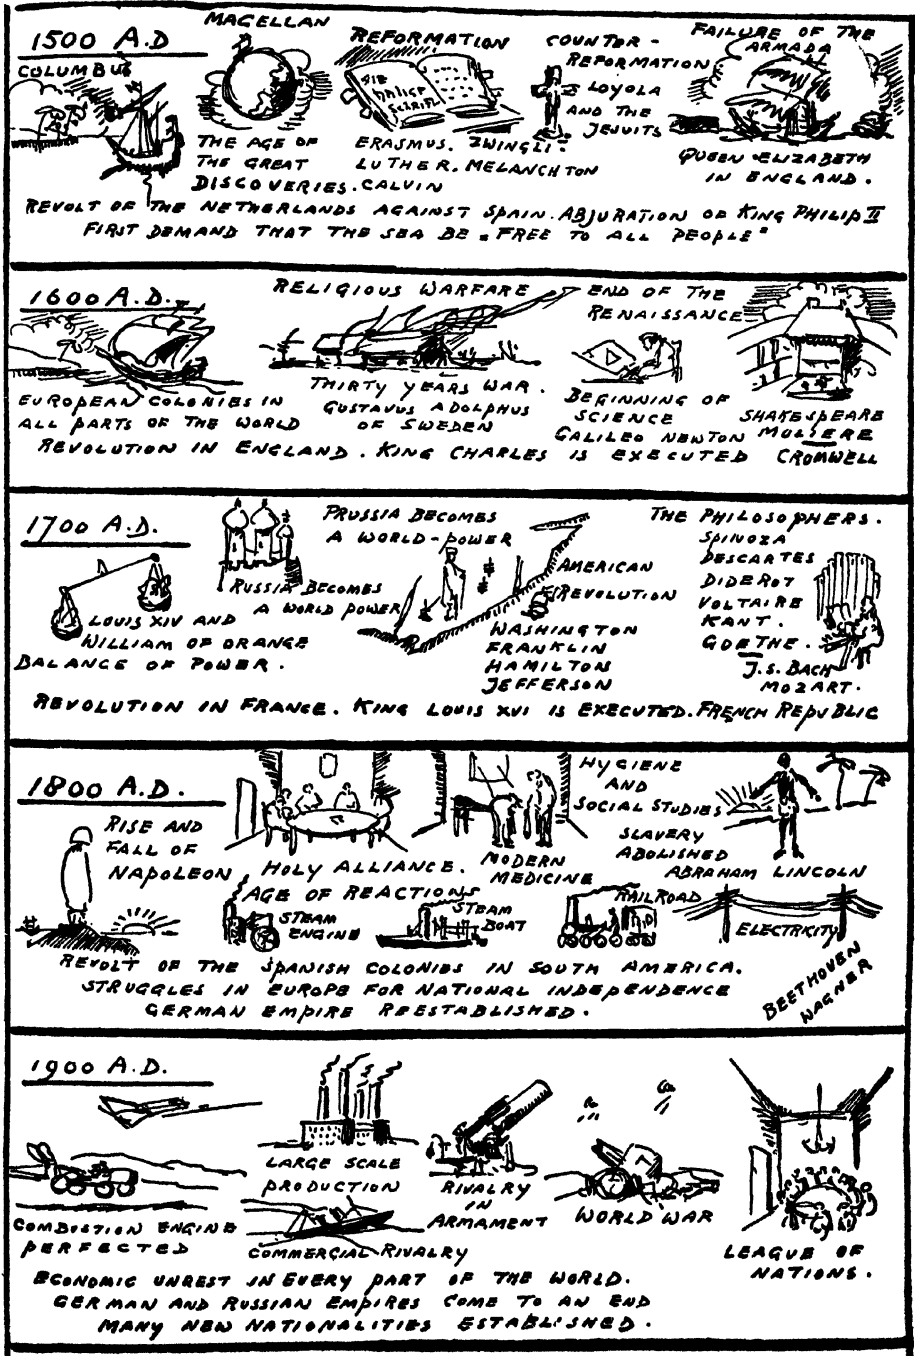 1500 A.D
COLUMBUS
MAGELLAN
THE AGE OF
THE GREAT
DISCOVERIES.
REFORMATION
DIE
HEILIGE
SCHRIFT
ERASMUS. ZWINGLI-
LUTHER. MELANCHTON
CALVIN
COUNTER-
REFORMATION
LOYOLA
AND THE
JESUITS
FAILURE OF THE
ARMADA
QUEEN ELIZABETH
IN ENGLAND.
REVOLT OF THE NETHERLANDS AGAINST SPAIN. ABJURATION OF KING PHILIP II
FIRST DEMAND THAT THE SEA BE "FREE TO ALL PEOPLE"
1600 A.D.
EUROPEAN COLONIES IN
ALL PARTS OF THE WORLD
RELIGIOUS WARFARE
THIRTY YEARS WAR.
GUSTAVUS ADOLPHUS
OF SWEDEN
END OF THE
RENAISSANCE
BEGINNING OF
SCIENCE
GALILEO NEWTON
SHAKESPEARE
MOLIERE
REVOLUTION IN ENGLAND. KING CHARLES IS EXECUTED CROMWELL
1700 A.D.
LOUIS XIV AND
WILLIAM OF ORANGE
BALANCE OF POWER.
RUSSIA BECOMES
A WORLD POWER
PRUSSIA BECOMES
A WORLD-POWER
AMERICAN
REVOLUTION
WASHINGTON
FRANKLIN
HAMILTON
JEFFERSON
THE PHILOSOPHERS.
SPINOZA
DESCARTES
DIDEROT
VOLTAIRE
KANT.
GOETHE.
J.S. BACH
MOZART.
REVOLUTION IN FRANCE. KING LOUIS XVI IS EXECUTED. FRENCH REPUBLIC
1800 A.D.
RISE AND
FALL OF
NAPOLEON
HOLY ALLIANCE.
AGE OF REACTIONS
MODERN
MEDICINE
HYGIENE
AND
SOCIAL STUDIES
SLAVERY
ABOLISHED
ABRAHAM LINCOLN
STEAM
ENGINE
STEAM
BOAT
RAILROAD
ELECTRICITY
REVOLT OF THE SPANISH COLONIES IN SOUTH AMERICA.
STRUGGLES IN EUROPE FOR NATIONAL INDEPENDENCE
GERMAN EMPIRE REESTABLISHED.
BEETHOVEN
WAGNER
1900 A.D.
COMBUSTION ENGINE
PERFECTED
LARGE SCALE
PRODUCTION
COMMERCIAL RIVALRY
RIVALRY
IN
ARMAMENT
WORLD WAR
LEAGUE OF
NATIONS.
ECONOMIC UNREST IN EVERY PART OF THE WORLD.
GERMAN AND RUSSIAN EMPIRES COME TO AN END
MANY NEW NATIONALITIES ESTABLISHED.